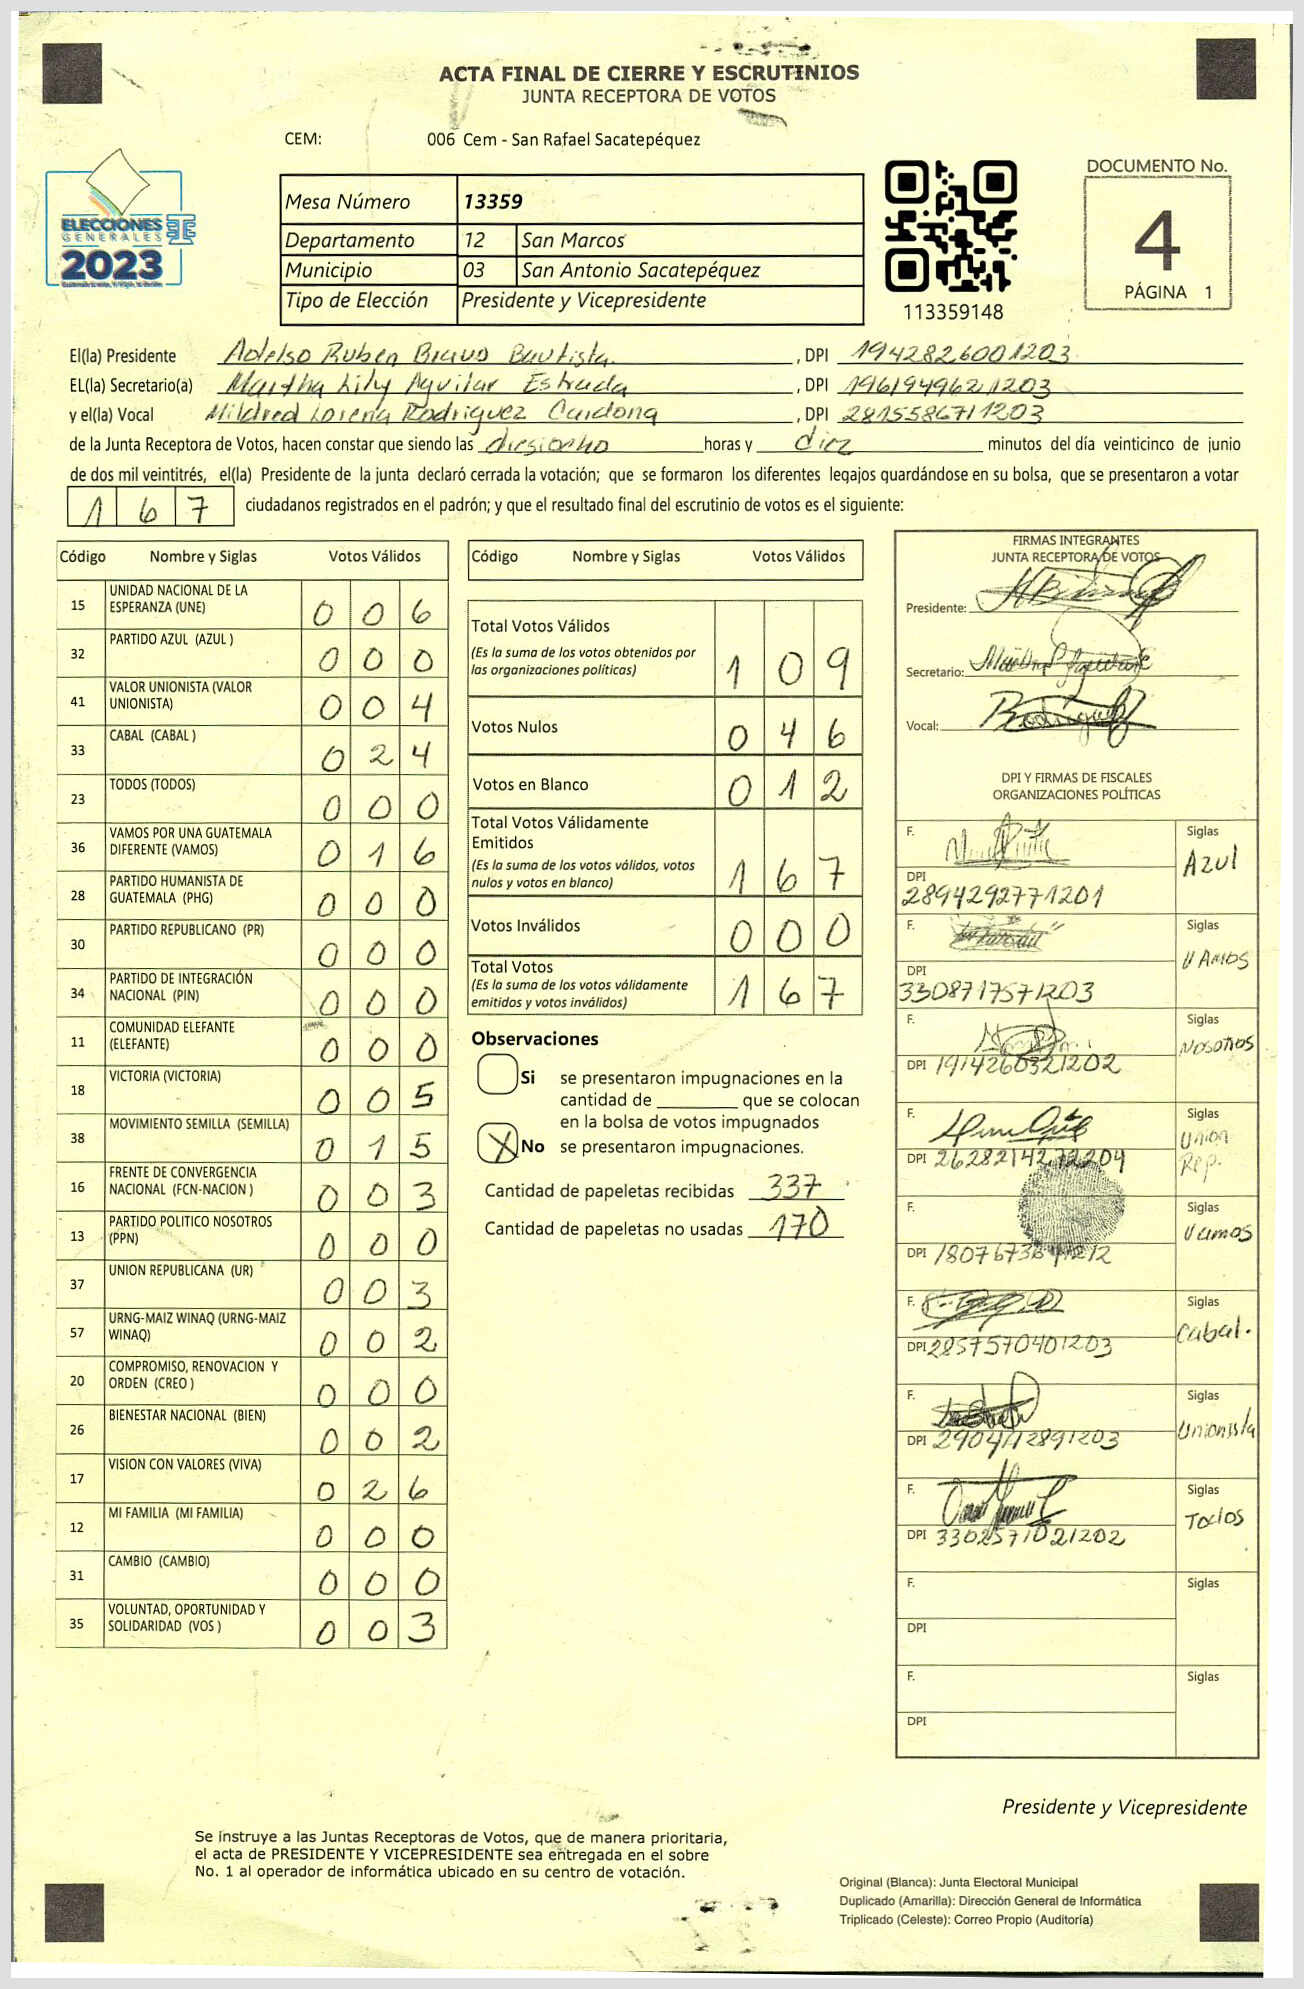 ACTA FINAL DE CIERRE Y ESCRUTINIOS
JUNTA RECEPTORA DE VOTOS
CEM: 006 Cem - San Rafael Sacatepéquez
ELECCIONES
GENERALES
2023
Mesa Número 13359
Departamento 12 San Marcos
Municipio 03 San Antonio Sacatepéquez
Tipo de Elección Presidente y Vicepresidente
113359148
DOCUMENTO No.
4
PÁGINA 1
El(la) Presidente Adelso Ruben Bravo Bautista , DPI 1942826001203
EL(la) Secretario(a) Martha Lily Aguilar Estrada , DPI 1961949621203
y el(la) Vocal Mildred Lorena Rodriguez Cardona , DPI 2815586711203
de la Junta Receptora de Votos, hacen constar que siendo las diesiocho horas y diez minutos del día veinticinco de junio
de dos mil veintitrés, el(la) Presidente de la junta declaró cerrada la votación; que se formaron los diferentes legajos quardándose en su bolsa, que se presentaron a votar
1 6 7 ciudadanos registrados en el padrón; y que el resultado final del escrutinio de votos es el siguiente:
Código Nombre y Siglas Votos Válidos
15 UNIDAD NACIONAL DE LA ESPERANZA (UNE) 0 0 6
32 PARTIDO AZUL (AZUL ) 0 0 0
41 VALOR UNIONISTA (VALOR UNIONISTA) 0 0 4
33 CABAL (CABAL ) 0 2 4
23 TODOS (TODOS) 0 0 0
36 VAMOS POR UNA GUATEMALA DIFERENTE (VAMOS) 0 1 6
28 PARTIDO HUMANISTA DE GUATEMALA (PHG) 0 0 0
30 PARTIDO REPUBLICANO (PR) 0 0 0
34 PARTIDO DE INTEGRACIÓN NACIONAL (PIN) 0 0 0
11 COMUNIDAD ELEFANTE (ELEFANTE) 0 0 0
18 VICTORIA (VICTORIA) 0 0 5
38 MOVIMIENTO SEMILLA (SEMILLA) 0 1 5
16 FRENTE DE CONVERGENCIA NACIONAL (FCN-NACION ) 0 0 3
13 PARTIDO POLITICO NOSOTROS (PPN) 0 0 0
37 UNION REPUBLICANA (UR) 0 0 3
57 URNG-MAIZ WINAQ (URNG-MAIZ WINAQ) 0 0 2
20 COMPROMISO, RENOVACION Y ORDEN (CREO ) 0 0 0
26 BIENESTAR NACIONAL (BIEN) 0 0 2
17 VISION CON VALORES (VIVA) 0 2 6
12 MI FAMILIA (MI FAMILIA) 0 0 0
31 CAMBIO (CAMBIO) 0 0 0
35 VOLUNTAD, OPORTUNIDAD Y SOLIDARIDAD (VOS ) 0 0 3
Código Nombre y Siglas Votos Válidos
Total Votos Válidos 1 0 9
(Es la suma de los votos obtenidos por
las organizaciones políticas)
Votos Nulos 0 4 6
Votos en Blanco 0 1 2
Total Votos Válidamente
Emitidos 1 6 7
(Es la suma de los votos válidos, votos
nulos y votos en blanco)
Votos Inválidos 0 0 0
Total Votos 1 6 7
(Es la suma de los votos válidamente
emitidos y votos inválidos)
Observaciones
Si se presentaron impugnaciones en la
cantidad de ________ que se colocan
en la bolsa de votos impugnados
X No se presentaron impugnaciones.
Cantidad de papeletas recibidas 337
Cantidad de papeletas no usadas 170
FIRMAS INTEGRANTES
JUNTA RECEPTORA DE VOTOS
Presidente:
Secretario:
Vocal: Rodriguez
DPI Y FIRMAS DE FISCALES
ORGANIZACIONES POLÍTICAS
F. Siglas
Azul
DPI 2894292771201
F. Siglas
VAMOS
DPI 3308717571203
F. Siglas
NOSOTROS
DPI 1914260321202
F. Siglas
Union
Rep.
DPI 2628214272204
F. Siglas
Vamos
DPI
F. Siglas
Cabal.
DPI 2857570401203
F. Siglas
Unionista
DPI 2904112891203
F. Siglas
Todos
DPI 3302571021202
F. Siglas
DPI
F. Siglas
DPI
Presidente y Vicepresidente
Se instruye a las Juntas Receptoras de Votos, que de manera prioritaria,
el acta de PRESIDENTE Y VICEPRESIDENTE sea entregada en el sobre
No. 1 al operador de informática ubicado en su centro de votación.
Original (Blanca): Junta Electoral Municipal
Duplicado (Amarilla): Dirección General de Informática
Triplicado (Celeste): Correo Propio (Auditoría)